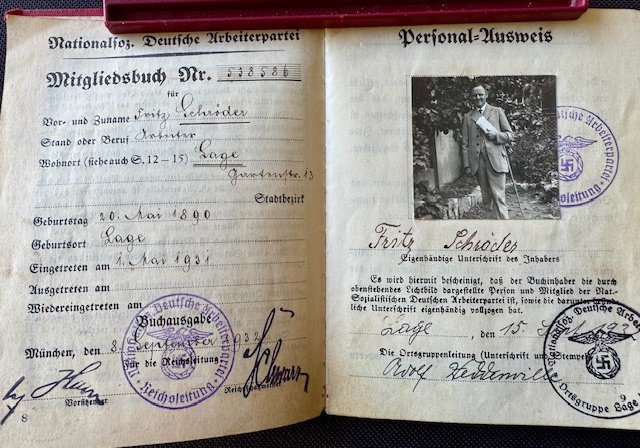 Nationalsoz. Deutsche Arbeiterpartei
Mitgliedsbuch Nr. 538586
für
Vor- und Zuname Fritz Schröder
Stand oder Beruf Arbeiter
Wohnort (siehe auch S. 12–15) Lage
Gartenstr. 13
Stadtbezirk
Geburtstag 20. Mai 1890
Geburtsort Lage
Eingetreten am 1. Mai 1931
Ausgetreten am
Wiedereingetreten am
Buchausgabe
München, den 8. September 1932
für die Reichsleitung:
Vorsitzender
Reichsschatzmeister
Schwarz
8
Reichsleitung
Personal-Ausweis
Deutsche Arbeiterpartei
Reichsleitung
Fritz Schröder
Eigenhändige Unterschrift des Inhabers
Es wird hiermit bescheinigt, daß der Buchinhaber die durch
obenstehendes Lichtbild dargestellte Person und Mitglied der Nat.-
Sozialistischen Deutschen Arbeiterpartei ist, sowie die darunter
liche Unterschrift eigenhändig vollzogen hat.
Lage, den 15.
Die Ortsgruppenleitung (Unterschrift u. Stempel)
Adolf
Nationalsoz. Deutsche Arb
Ortsgruppe Lage
9